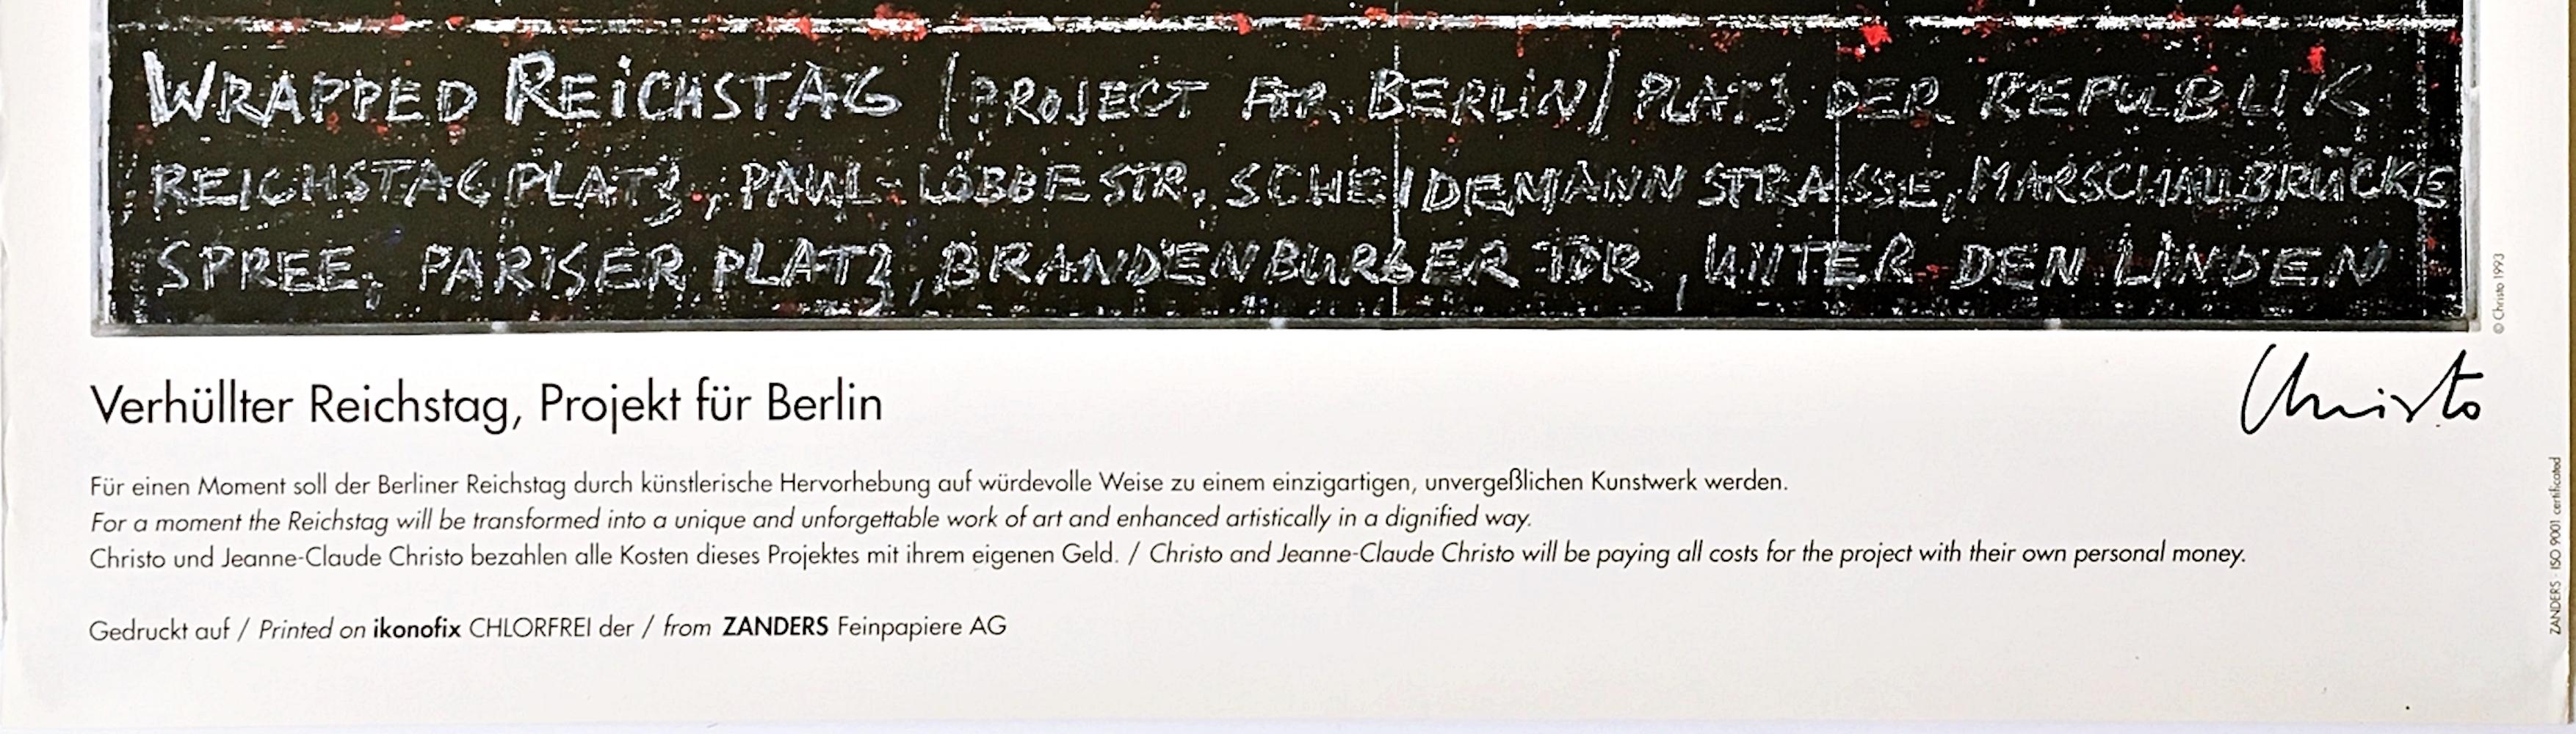 WRAPPED REICHSTAG (PROJECT FOR BERLIN) PLATZ DER REPUBLIK
REICHSTAGPLATZ, PAUL-LÖBBE STR, SCHEIDEMANN STRASSE, MARSCHALLBRÜCKE
SPREE, PARISER PLATZ, BRANDENBURGER TOR, UNTER DEN LINDEN
© Christo 1993
Christo
Verhüllter Reichstag, Projekt für Berlin
Für einen Moment soll der Berliner Reichstag durch künstlerische Hervorhebung auf würdevolle Weise zu einem einzigartigen, unvergeßlichen Kunstwerk werden.
For a moment the Reichstag will be transformed into a unique and unforgettable work of art and enhanced artistically in a dignified way.
Christo und Jeanne-Claude Christo bezahlen alle Kosten dieses Projektes mit ihrem eigenen Geld. / Christo and Jeanne-Claude Christo will be paying all costs for the project with their own personal money.
Gedruckt auf / Printed on ikonofix CHLORFREI der / from ZANDERS Feinpapiere AG
ZANDERS · ISO 9001 certificated